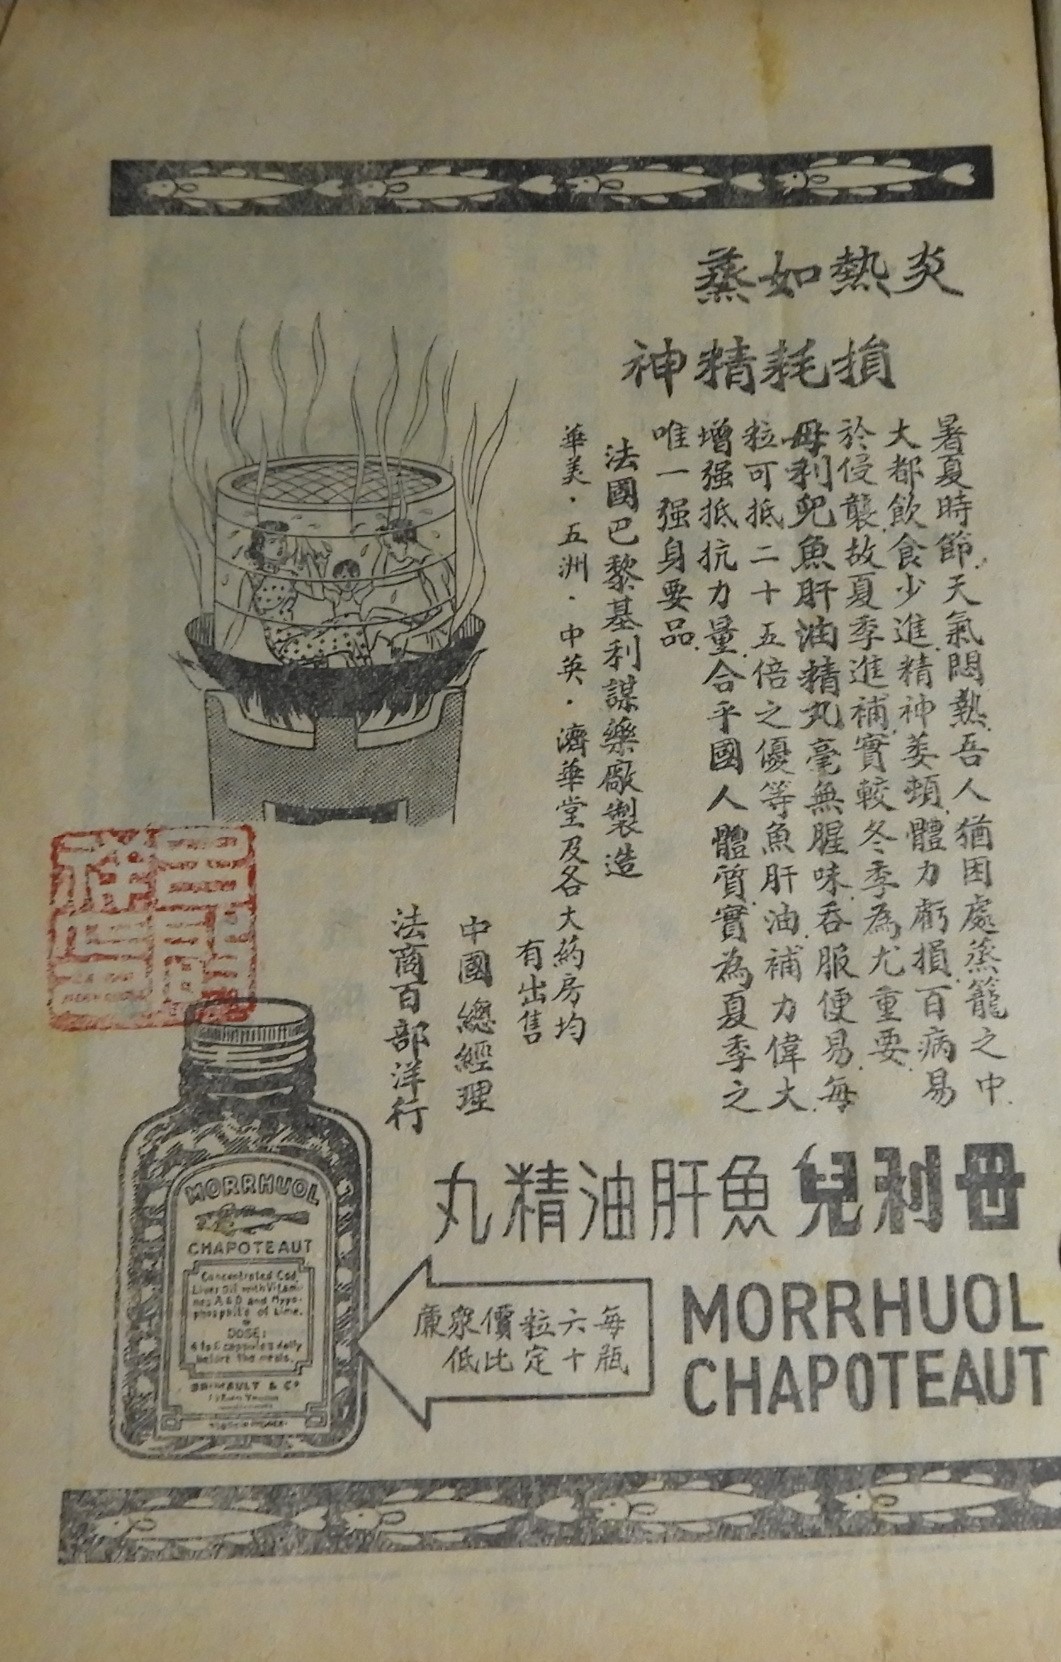 炎熱如蒸
損耗精神
暑夏時節天氣悶熱吾人猶困處蒸籠之中
大都飲食少進精神萎頓體力虧損百病易
於侵襲故夏季進補實較冬季為尤重要
毋利兒魚肝油精丸毫無腥味吞服便易每
粒可抵二十五倍之優等魚肝油補力偉大
增强抵抗力量合乎國人體質實為夏季之
唯一强身要品
法國巴黎基利謀藥廠製造
華美·五洲·中英·濟華堂及各大葯房均
有出售
中國總經理
法商百部洋行
毋利兒魚肝油精丸
MORRHUOL
CHAPOTEAUT
每瓶六十粒定價比眾低廉
MORRHUOL
CHAPOTEAUT
Concentrated Cod
Liver Oil with Vitami-
nes A & D and Hypo-
phosphite of Lime.
DOSE:
4 to 6 capsules daily
before the meals.
GRIMAULT & Co